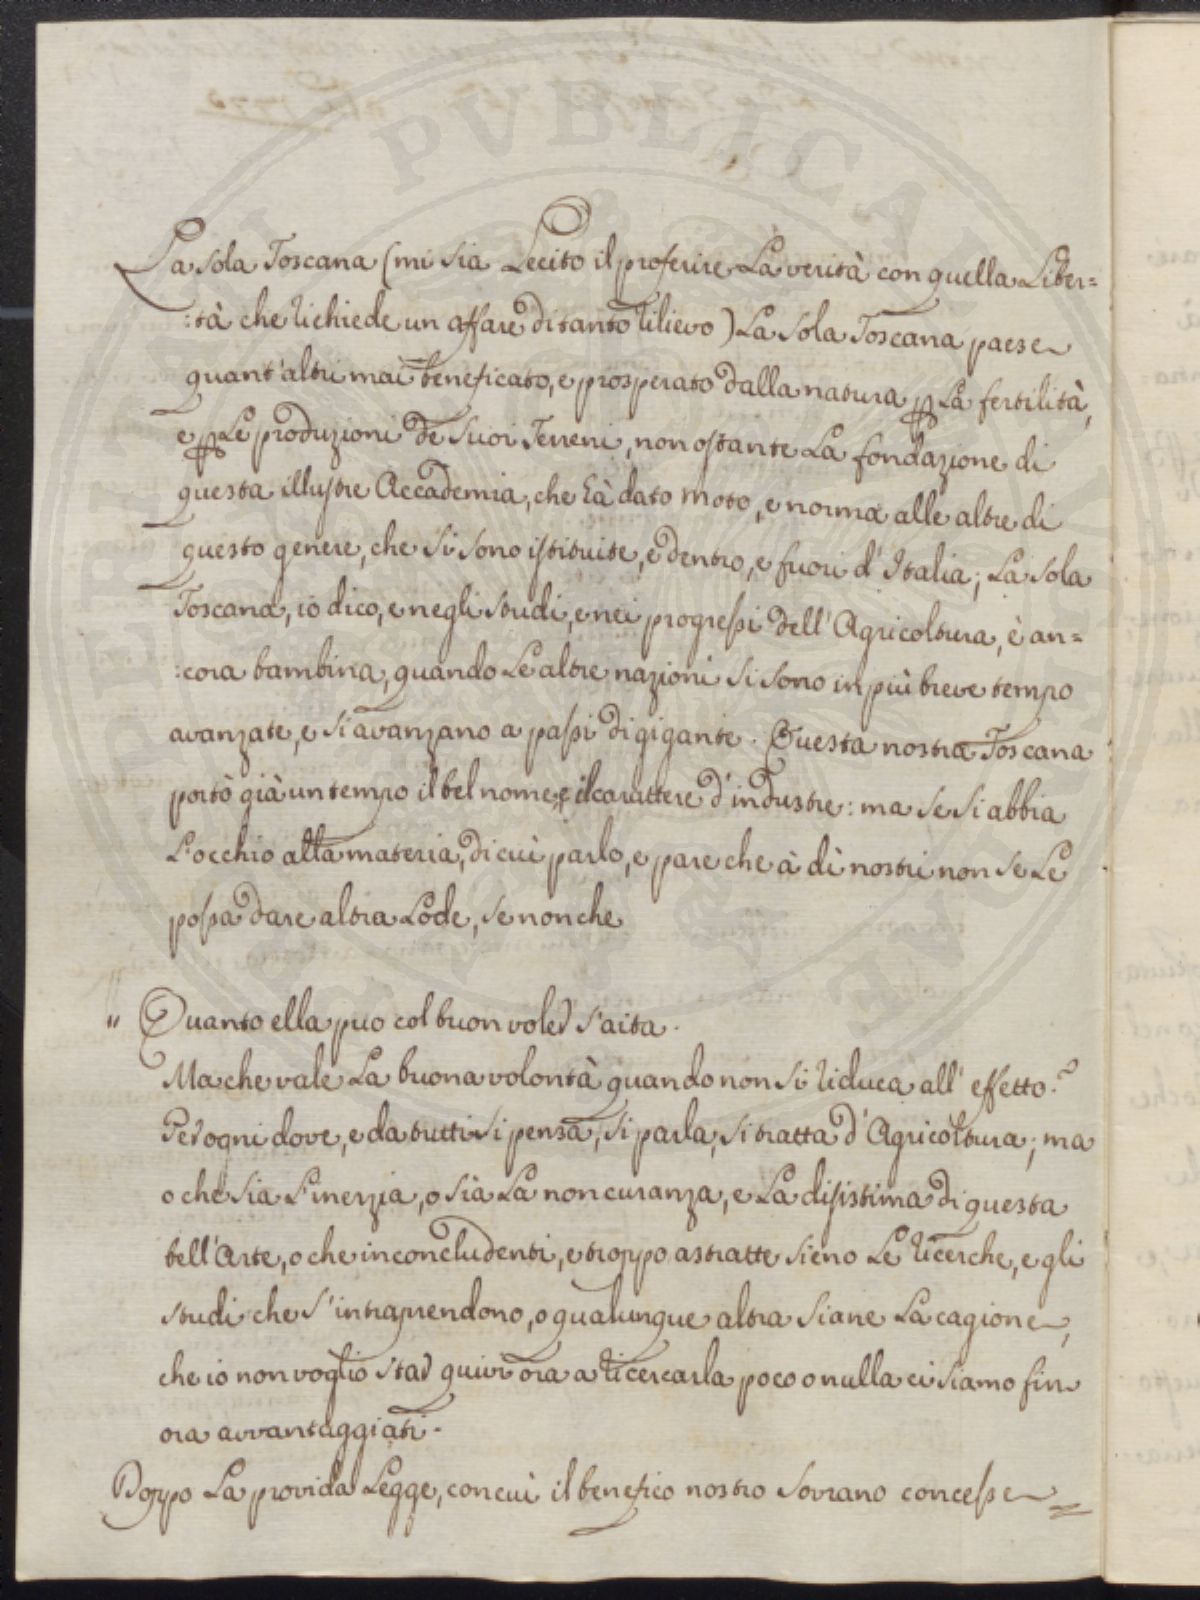 La sola Toscana (mi sia Lecito il proferire La verità con quella Liber=
:tà che richiede un affare di tanto rilievo) La sola Toscana paese
quant'altri mai beneficato, e prosperato dalla natura p La fertilità,
e p Le produzioni de suoi Terreni, non ostante La fondazione di
questa illustre Accademia, che hà dato moto, e norma alle altre di
questo genere, che si sono istituite, e dentro, e fuori d'Italia; La sola
Toscana, io dico, e negli studi, e nei progressi dell'Agricoltura, è an=
:cora bambina, quando Le altre nazioni si sono in più breve tempo
avanzate, e si avanzano a passi di gigante. Questa nostra Toscana
portò già un tempo il bel nome, e il carattere d'industre: ma se si abbia
L'occhio alla materia, di cui parlo, e pare che à dì nostri non se Le
possa dare altra Lode, se non che
" Quanto ella puo col buon voler s'aita.
Ma che vale La buona volontà quando non si riduca all'effetto?
Per ogni dove, e da tutti si pensa, si parla, si tratta d'Agricoltura; ma
o che sia L'inerzia, o sia La non curanza, e La disistima di questa
bell'Arte, o che inconcludenti, e troppo astratte sieno Le ricerche, e gli
studi che s'intraprendono, o qualunque altra siane La cagione,
che io non voglio star quivi ora a ricercarla poco o nulla ci siamo fin
ora avvantaggiati.
Doppo La provida Legge, con cui il benefico nostro Sovrano concesse=